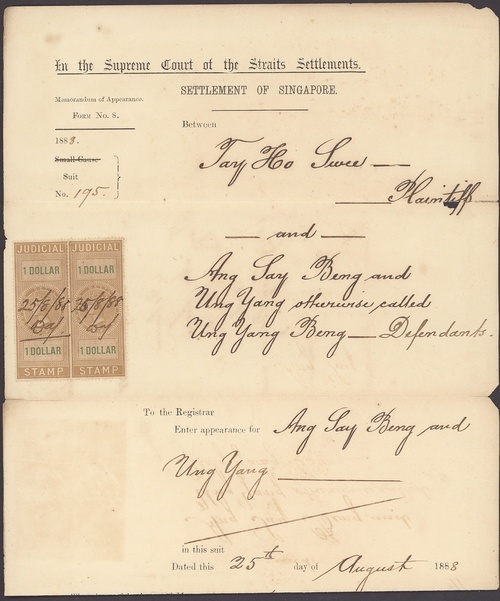 In the Supreme Court of the Straits Settlements.
SETTLEMENT OF SINGAPORE.
Memorandum of Appearance.
FORM NO. 8.
1888.
Small Cause
Suit
No. 195.
Between
Tay Ho Swee —
Plaintiff
— and —
Ang Say Beng and
Ung Yang otherwise called
Ung Yang Beng — Defendants.
JUDICIAL JUDICIAL
1 DOLLAR 1 DOLLAR
25/8/88 25/8/88
1 DOLLAR 1 DOLLAR
STAMP STAMP
To the Registrar
Enter appearance for Ang Say Beng and
Ung Yang
in this suit
Dated this 25th day of August 1888